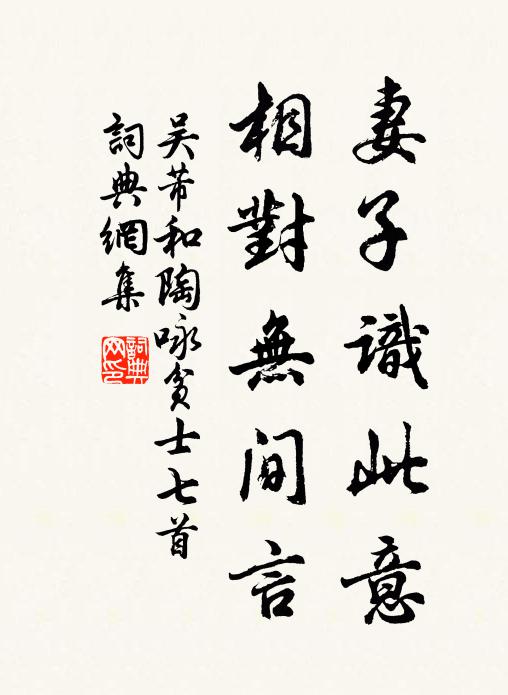 妻子識此意
相對無間言
吳芾和陶咏貧士七首
詞典網集
詞典網印